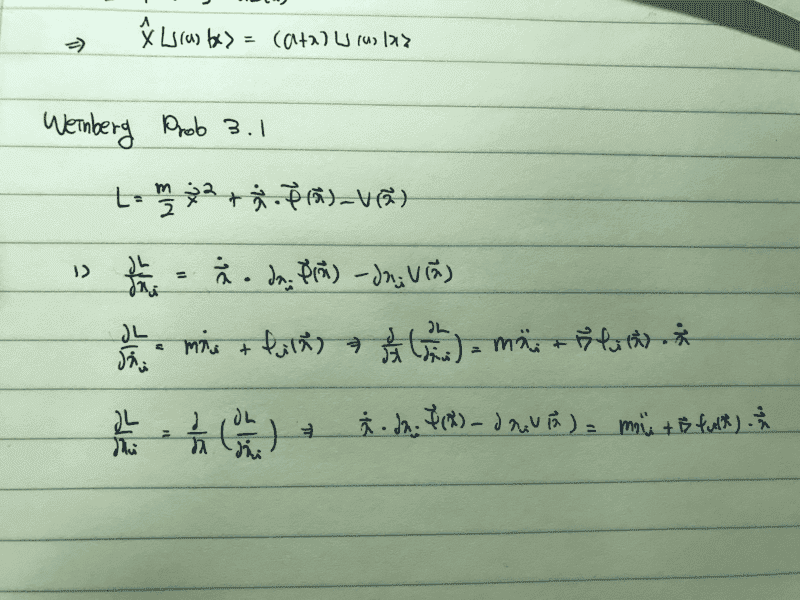 ⇒ X̂ U(a)|x> = (a+x) U(a)|x>
Weinberg Prob 3.1
L = m/2 ẋ⃗² + ẋ⃗ · f⃗(x⃗) − V(x⃗)
1) ∂L/∂xᵢ = ẋ⃗ · ∂xᵢ f⃗(x⃗) − ∂xᵢ V(x⃗)
∂L/∂ẋᵢ = mẋᵢ + fᵢ(x⃗) ⇒ d/dt (∂L/∂ẋᵢ) = mẍᵢ + ∇⃗fᵢ(x⃗) · ẋ⃗
∂L/∂xᵢ = d/dt (∂L/∂ẋᵢ) ⇒ ẋ⃗ · ∂xᵢ f⃗(x⃗) − ∂xᵢ V(x⃗) = mẍᵢ + ∇⃗fᵢ(x⃗) · ẋ⃗